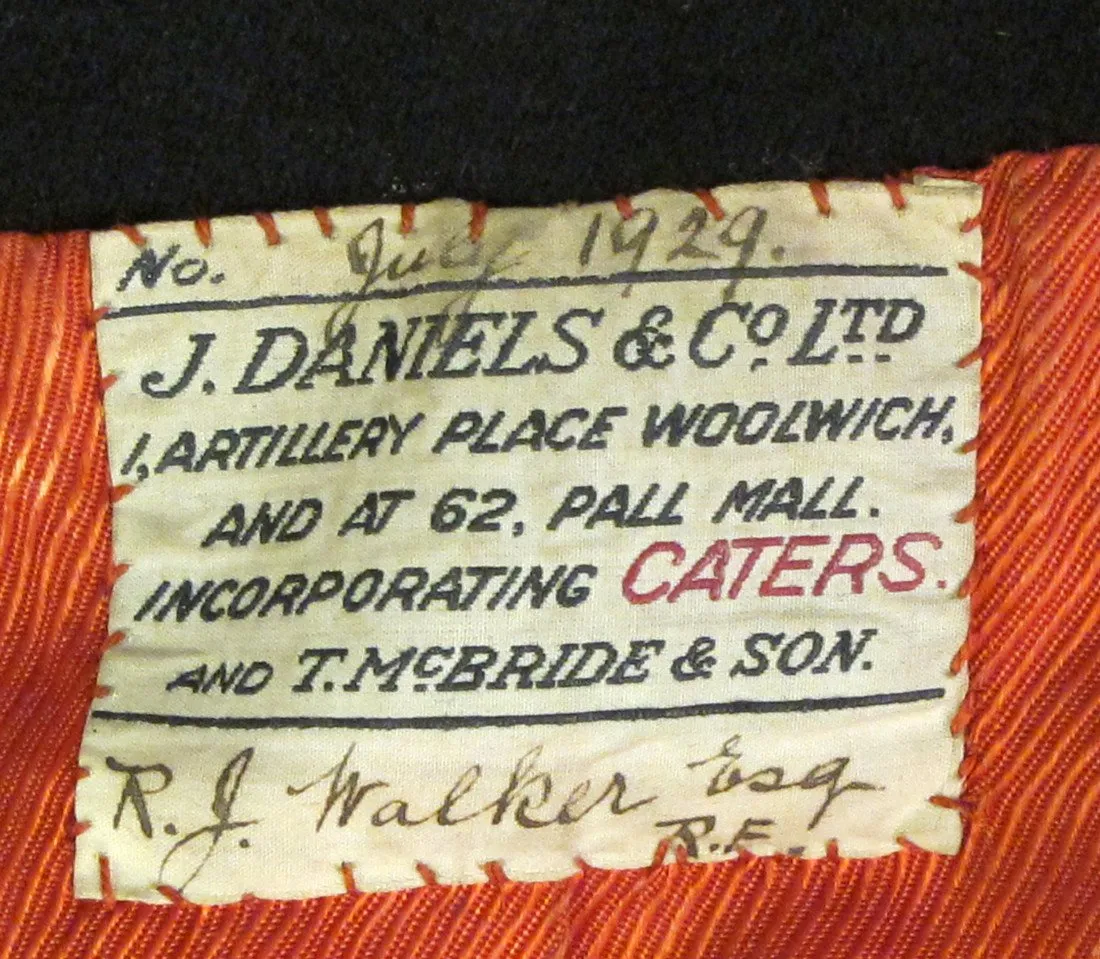 No. July 1929.
J. DANIELS & Co. LTD
1, ARTILLERY PLACE WOOLWICH,
AND AT 62, PALL MALL.
INCORPORATING CATERS.
AND T. McBRIDE & SON.
R. J. Walker Esq
R.E.